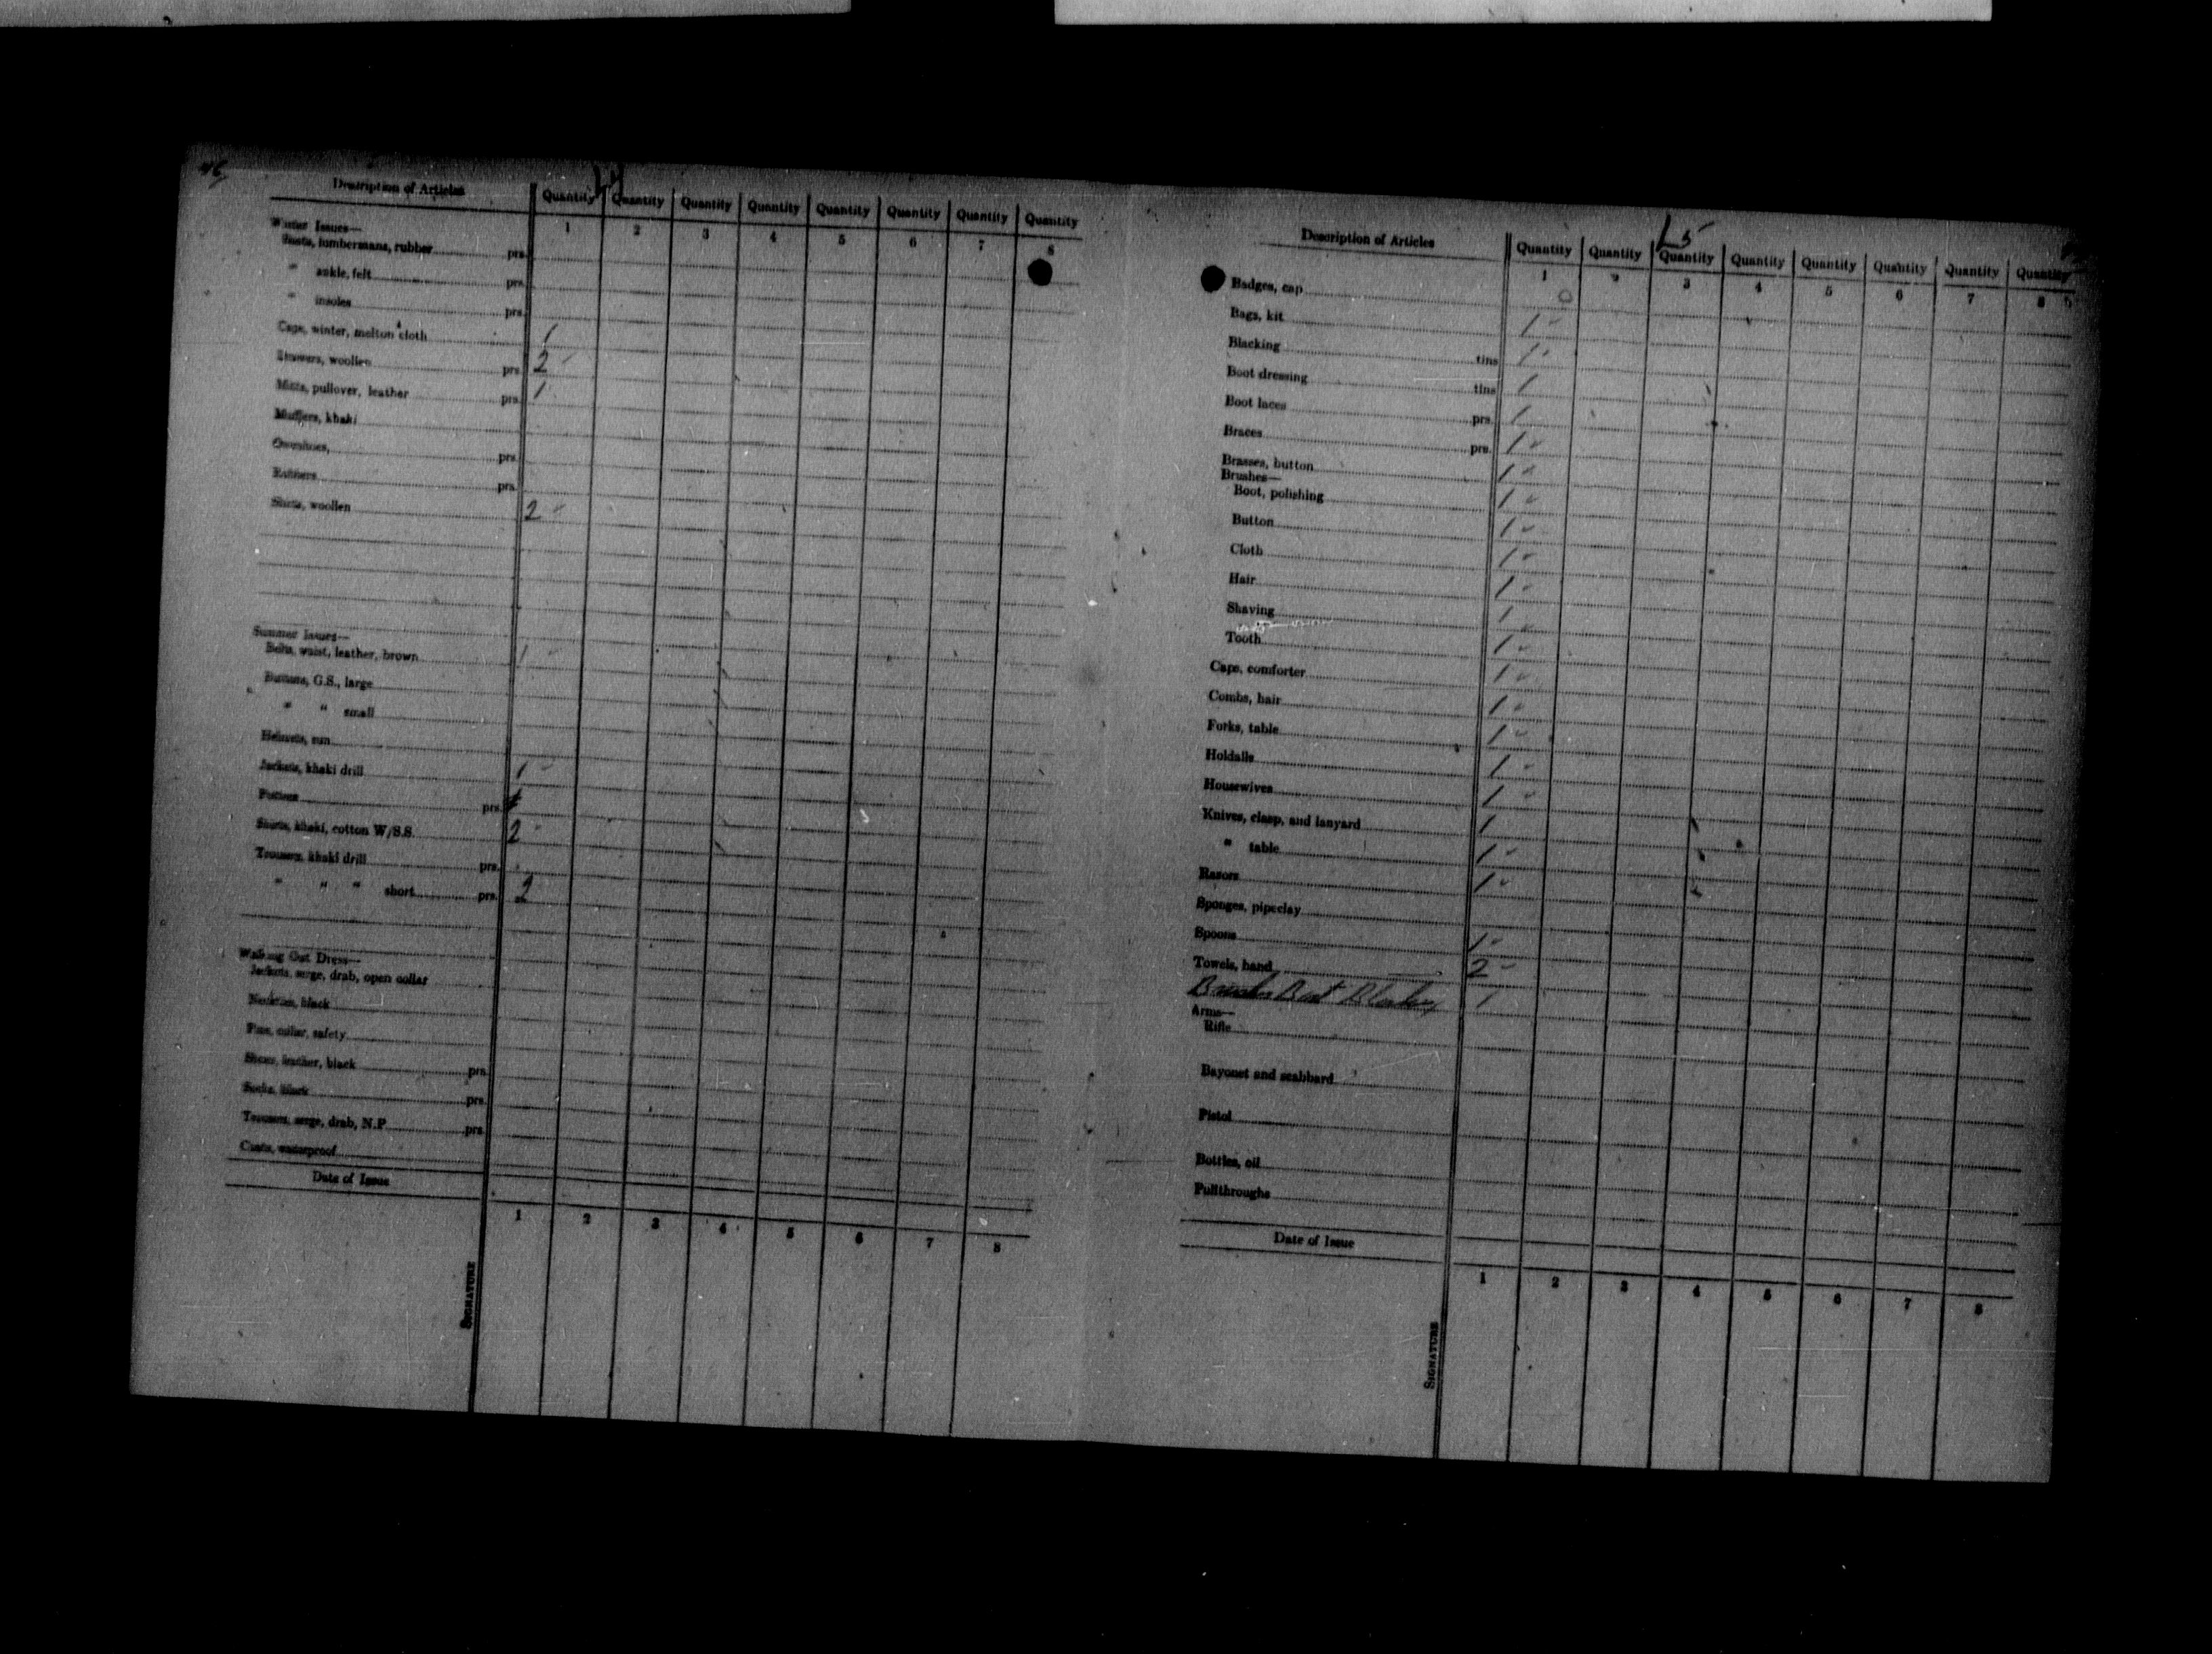 Description of Articles Quantity Quantity Quantity Quantity Quantity Quantity Quantity Quantity
1 2 3 4 5 6 7 8
Winter Issues—
Boots, lumbermans, rubber prs.
" ankle, felt prs.
" insoles prs.
Caps, winter, melton cloth 1
Drawers, woollen prs. 2
Mitts, pullover, leather prs. 1
Mufflers, khaki
Overshoes, prs.
Rubbers prs.
Shirts, woollen 2
Summer Issues—
Belts, waist, leather, brown 1
Buttons, G.S., large
" " small
Helmets, sun
Jackets, khaki drill 1
Puttees prs.
Shirts, khaki, cotton W/S.S. 2
Trousers, khaki drill prs.
" " " short prs. 2
Walking Out Dress—
Jackets, serge, drab, open collar
Neckties, black
Pins, collar, safety
Shoes, leather, black prs.
Socks, black prs.
Trousers, serge, drab, N.P. prs.
Coats, waterproof
Date of Issue
1 2 3 4 5 6 7 8
SIGNATURE
L5
Description of Articles Quantity Quantity Quantity Quantity Quantity Quantity Quantity Quantity
1 2 3 4 5 6 7 8
Badges, cap
Bags, kit 1
Blacking tins 1
Boot dressing tins 1
Boot laces prs. 1
Braces prs. 1
Brasses, button 1
Brushes—
Boot, polishing 1
Button 1
Cloth 1
Hair 1
Shaving 1
Tooth 1
Caps, comforter 1
Combs, hair 1
Forks, table 1
Holdalls 1
Housewives 1
Knives, clasp, and lanyard 1
" table 1
Razors 1
Sponges, pipeclay
Spoons 1
Towels, hand 2
Brushes Boot Blacking 1
Arms—
Rifle
Bayonet and scabbard
Pistol
Bottles, oil
Pullthroughs
Date of Issue
1 2 3 4 5 6 7 8
SIGNATURE